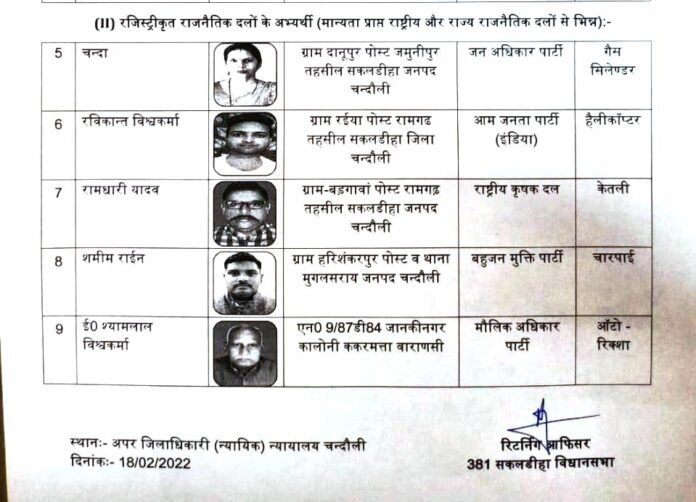 (II) रजिस्ट्रीकृत राजनैतिक दलों के अभ्यर्थी (मान्यता प्राप्त राष्ट्रीय और राज्य राजनैतिक दलों से भिन्न):-
5 चन्दा ग्राम दानूपुर पोस्ट जमुनीपुर जन अधिकार पार्टी गैस
तहसील सकलडीहा जनपद सिलेण्डर
चन्दौली
6 रविकान्त विश्वकर्मा ग्राम रईया पोस्ट रामगढ आम जनता पार्टी हैलीकॉप्टर
तहसील सकलडीहा जिला (इंडिया)
चन्दौली
7 रामधारी यादव ग्राम-बड़गावां पोस्ट रामगढ़ राष्ट्रीय कृषक दल केतली
तहसील सकलडीहा जनपद
चन्दौली
8 शमीम राईन ग्राम हरिशंकरपुर पोस्ट व थाना बहुजन मुक्ति पार्टी चारपाई
मुगलसराय जनपद चन्दौली
9 ई0 श्यामलाल एन0 9/87डी84 जानकीनगर मौलिक अधिकार ऑटो -
विश्वकर्मा कालोनी ककरमत्ता वाराणसी पार्टी रिक्शा
स्थानः- अपर जिलाधिकारी (न्यायिक) न्यायालय चन्दौली रिटर्निंग आफिसर
दिनांकः- 18/02/2022 381 सकलडीहा विधानसभा